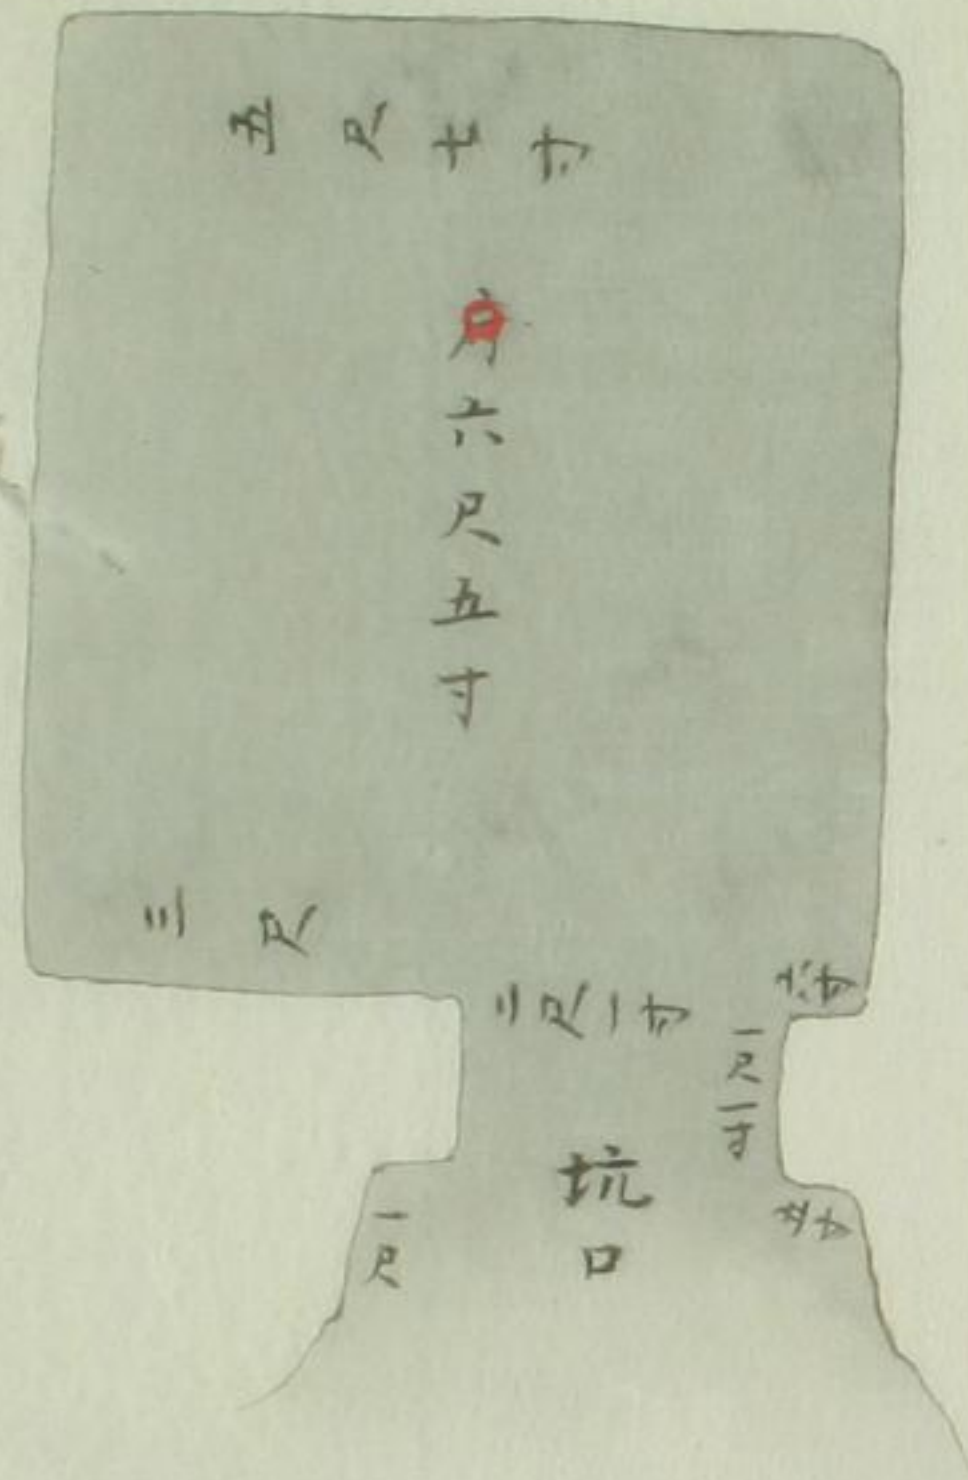 五尺七寸
六尺五寸
三尺
二尺一寸
六寸
一尺一寸
坑口
一尺
寸